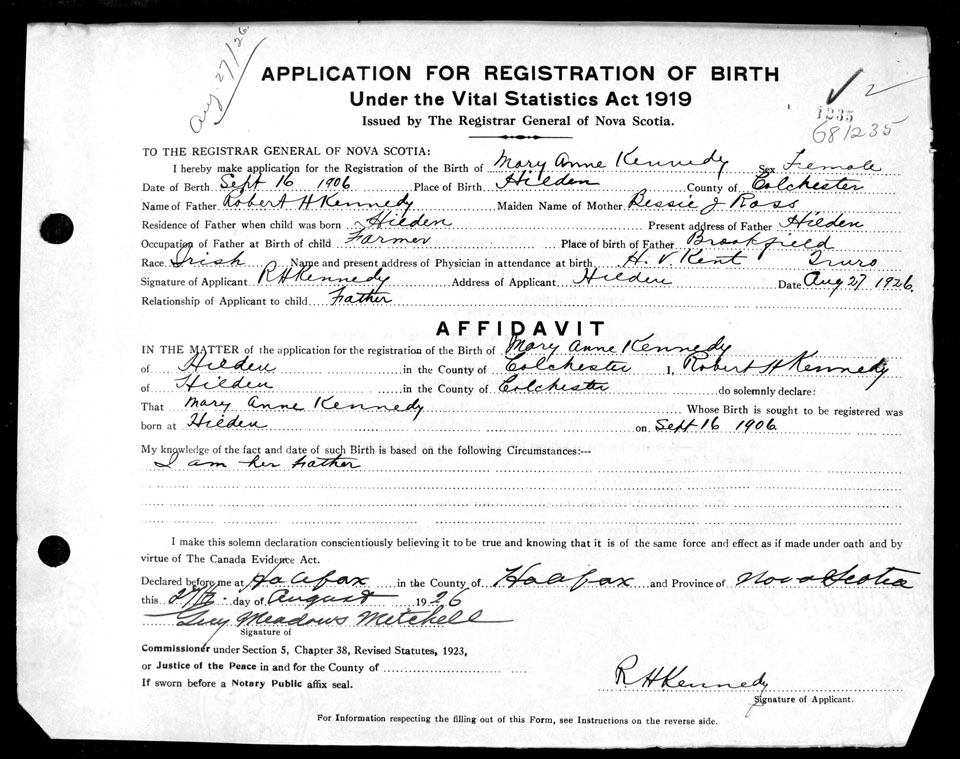 Aug. 27/26.
APPLICATION FOR REGISTRATION OF BIRTH
Under the Vital Statistics Act 1919
Issued by The Registrar General of Nova Scotia.
2
1235
681235
TO THE REGISTRAR GENERAL OF NOVA SCOTIA:
I hereby make application for the Registration of the Birth of Mary Anne Kennedy Sex Female
Date of Berth Sept 16 1906 Place of Birth Hilden County of Colchester
Name of Father Robert H Kennedy Maiden Name of Mother Bessie J Ross
Residence of Father when child was born Hilden Present address of Father Hilden
Occupation of Father at Birth of child Farmer Place of birth of Father Brookfield
Race Irish Name and present address of Physician in attendance at birth H. V Kent Truro
Signature of Applicant R H Kennedy Address of Applicant Hilden Date Aug 27 1926.
Relationship of Applicant to child Father
AFFIDAVIT
IN THE MATTER of the application for the registration of the Birth of Mary Anne Kennedy
of Hilden in the County of Colchester I, Robert H Kennedy
of Hilden in the County of Colchester do solemnly declare:
That Mary Anne Kennedy Whose Birth is sought to be registered was
born at Hilden on Sept 16 1906
My knowledge of the fact and date of such Birth is based on the following Circumstances:--
I am her Father
I make this solemn declaration conscientiously believing it to be true and knowing that it is of the same force and effect as if made under oath and by
virtue of The Canada Evidence Act.
Declared before me at Halifax in the County of Halifax and Province of Nova Scotia
this 27th day of August 1926
Guy Meadows Mitchell
Signature of
Commissioner under Section 5, Chapter 38, Revised Statutes, 1923,
or Justice of the Peace in and for the County of
If sworn before a Notary Public affix seal.
R H Kennedy
Signature of Applicant.
For Information respecting the filling out of this Form, see Instructions on the reverse side.